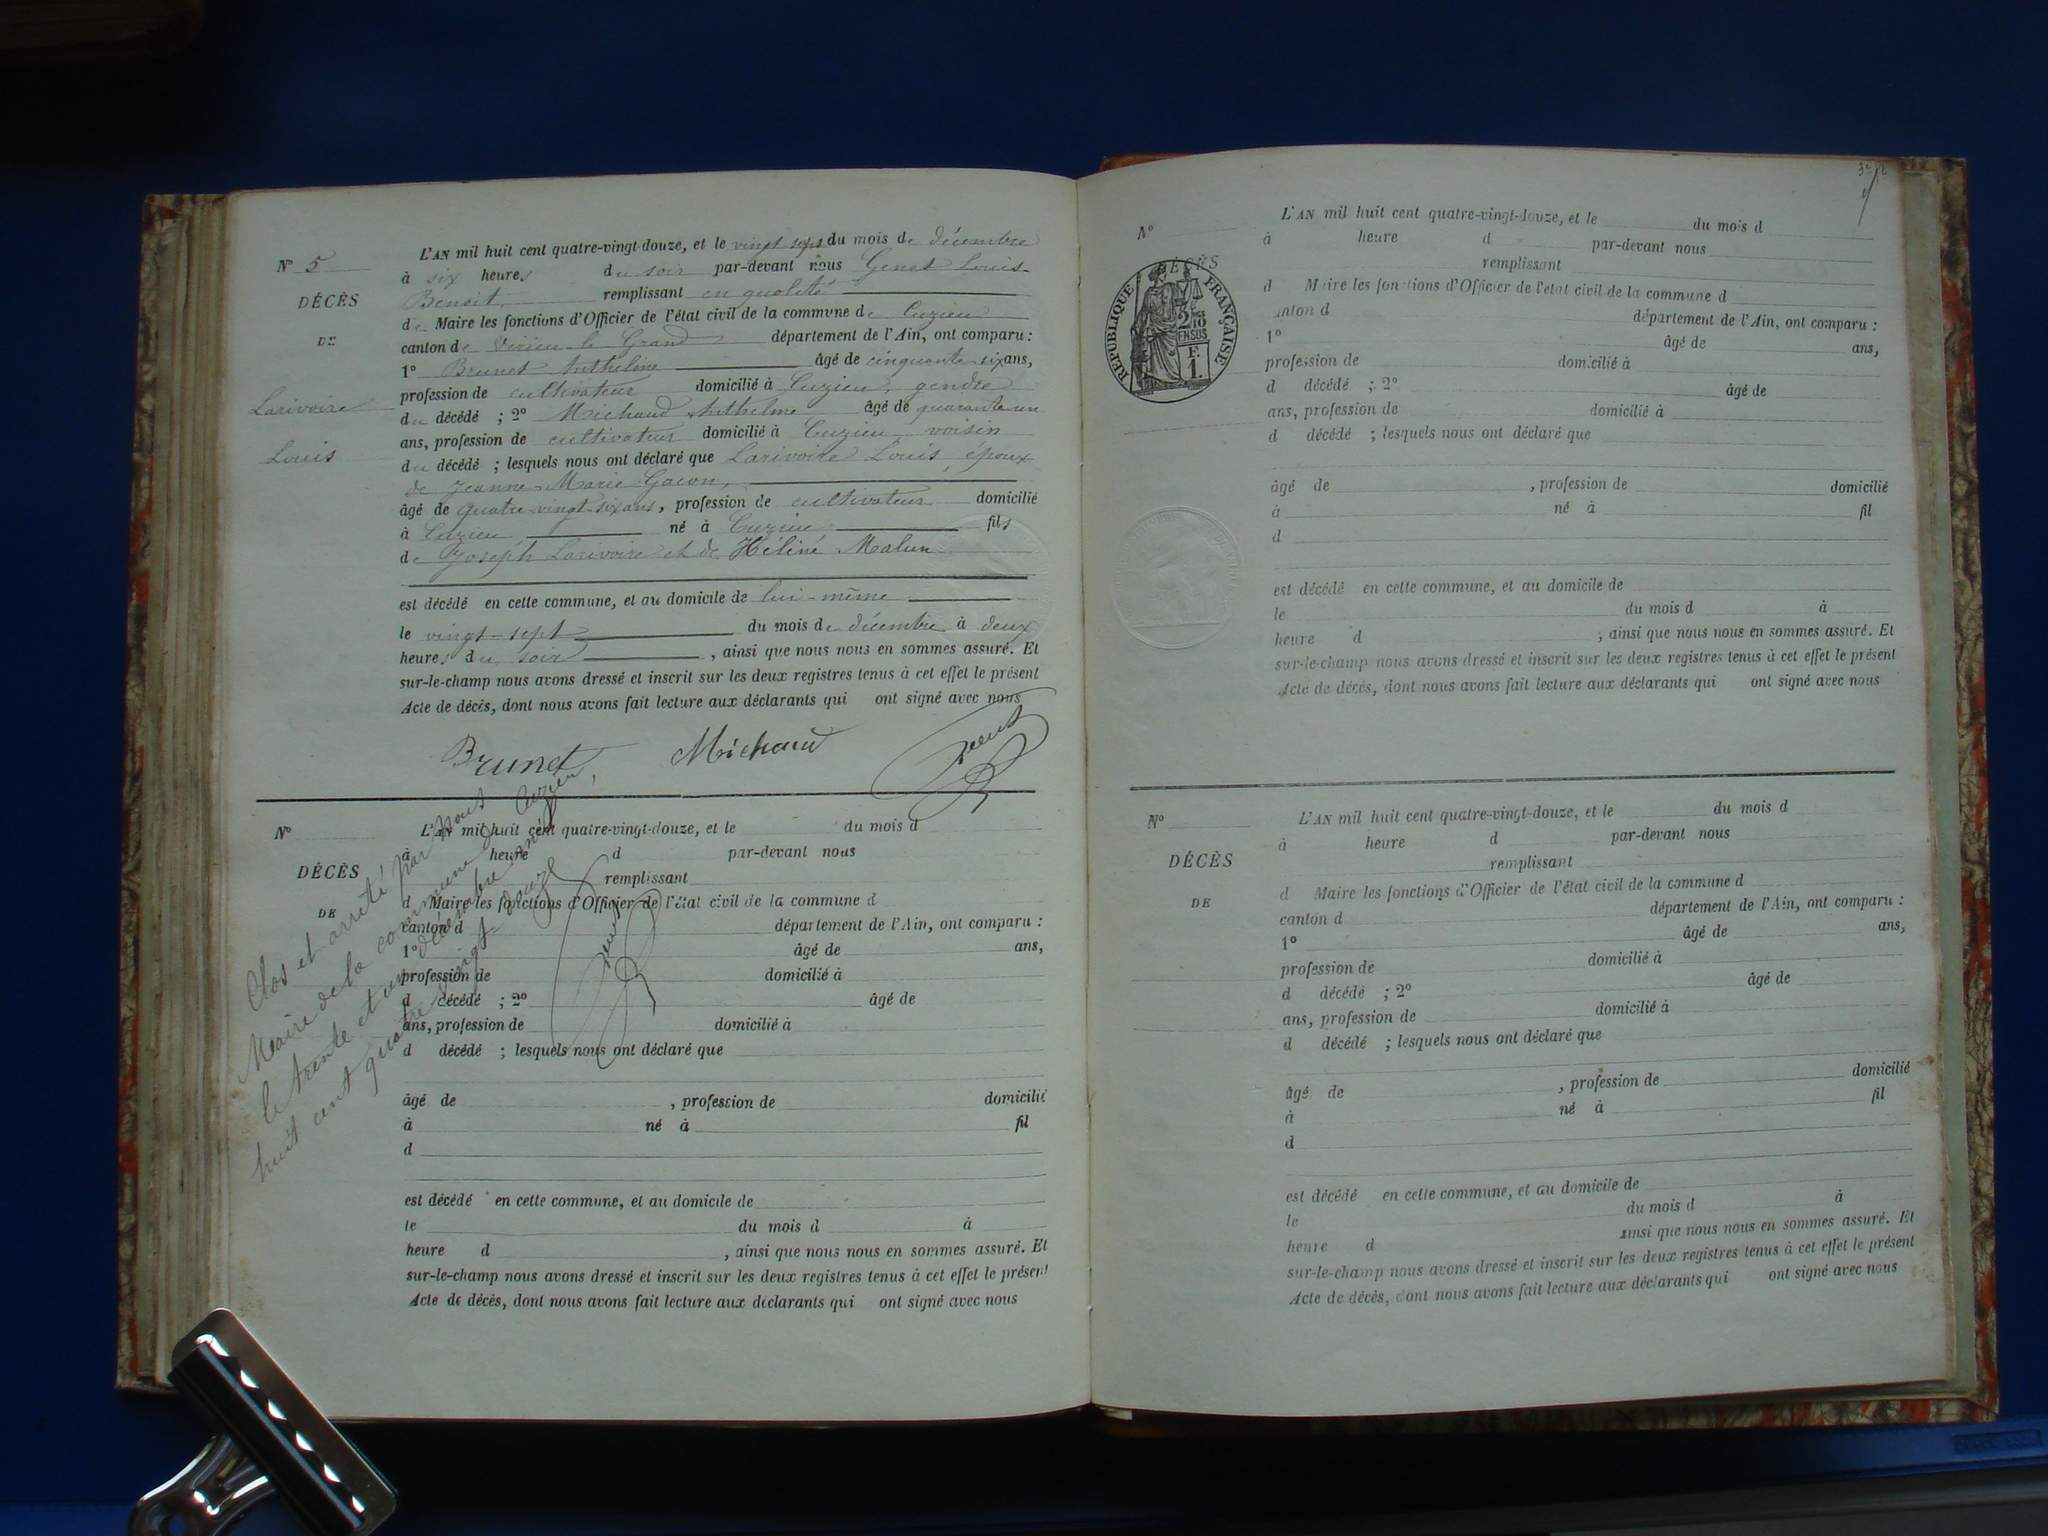 L'AN mil huit cent quatre-vingt-douze, et le vingt sept du mois de décembre
N° 5
à six heures du soir par-devant nous Genet Louis-
DÉCÈS
Benoit remplissant en qualité
de Maire les fonctions d'Officier de l'état civil de la commune de Cuzieu
DE
canton de Virieu-le Grand département de l'Ain, ont comparu :
1° Brunet Anthelme âgé de cinquante six ans,
profession de cultivateur domicilié à Cuzieu, gendre
Larivoire
du décédé ; 2° Michaud Anthelme âgé de quarante un
ans, profession de cultivateur domicilié à Cuzieu voisin
Louis
du décédé ; lesquels nous ont déclaré que Larivoire Louis, époux
de Jeanne-Marie Gacon,
âgé de quatre vingt-six ans, profession de cultivateur domicilié
à Cuzieu né à Cuzieu fils
de Joseph Larivoire et de Héliné Malun
est décédé en cette commune, et au domicile de lui-même
le vingt-sept du mois de décembre à deux
heures du soir, ainsi que nous nous en sommes assuré. Et
sur-le-champ nous avons dressé et inscrit sur les deux registres tenus à cet effet le présent
Acte de décès, dont nous avons fait lecture aux déclarants qui ont signé avec nous
Brunet Michaud Genet
N°
L'AN mil huit cent quatre-vingt-douze, et le du mois d
à heure d par-devant nous
DÉCÈS
remplissant
d Maire les fonctions d'Officier de l'état civil de la commune d
DE
canton d département de l'Ain, ont comparu :
1° âgé de ans,
profession de domicilié à
d décédé ; 2° âgé de
ans, profession de domicilié à
d décédé ; lesquels nous ont déclaré que
âgé de , profession de domicilié
à né à fil
d
est décédé en cette commune, et au domicile de
le du mois d à
heure d , ainsi que nous nous en sommes assuré. Et
sur-le-champ nous avons dressé et inscrit sur les deux registres tenus à cet effet le présent
Acte de décès, dont nous avons fait lecture aux déclarants qui ont signé avec nous
Clos et arrêté par nous
Maire de la commune de Cuzieu,
le trente et un décembre mil
huit cent quatre vingt douze
Genet
N°
L'AN mil huit cent quatre-vingt-douze, et le du mois d
à heure d par-devant nous
DÉCÈS
remplissant
RÉPUBLIQUE FRANÇAISE
2/10 EN SUS
F.
1.
d Maire les fonctions d'Officier de l'état civil de la commune d
canton d département de l'Ain, ont comparu :
1° âgé de ans,
profession de domicilié à
d décédé ; 2° âgé de
ans, profession de domicilié à
d décédé ; lesquels nous ont déclaré que
âgé de , profession de domicilié
à né à fil
d
est décédé en cette commune, et au domicile de
le du mois d à
heure d , ainsi que nous nous en sommes assuré. Et
sur-le-champ nous avons dressé et inscrit sur les deux registres tenus à cet effet le présent
Acte de décès, dont nous avons fait lecture aux déclarants qui ont signé avec nous
N°
L'AN mil huit cent quatre-vingt-douze, et le du mois d
à heure d par-devant nous
DÉCÈS
remplissant
d Maire les fonctions d'Officier de l'état civil de la commune d
DE
canton d département de l'Ain, ont comparu :
1° âgé de ans,
profession de domicilié à
d décédé ; 2° âgé de
ans, profession de domicilié à
d décédé ; lesquels nous ont déclaré que
âgé de , profession de domicilié
à né à fil
d
est décédé en cette commune, et au domicile de
le du mois d à
heure d ainsi que nous nous en sommes assuré. Et
sur-le-champ nous avons dressé et inscrit sur les deux registres tenus à cet effet le présent
Acte de décès, dont nous avons fait lecture aux déclarants qui ont signé avec nous